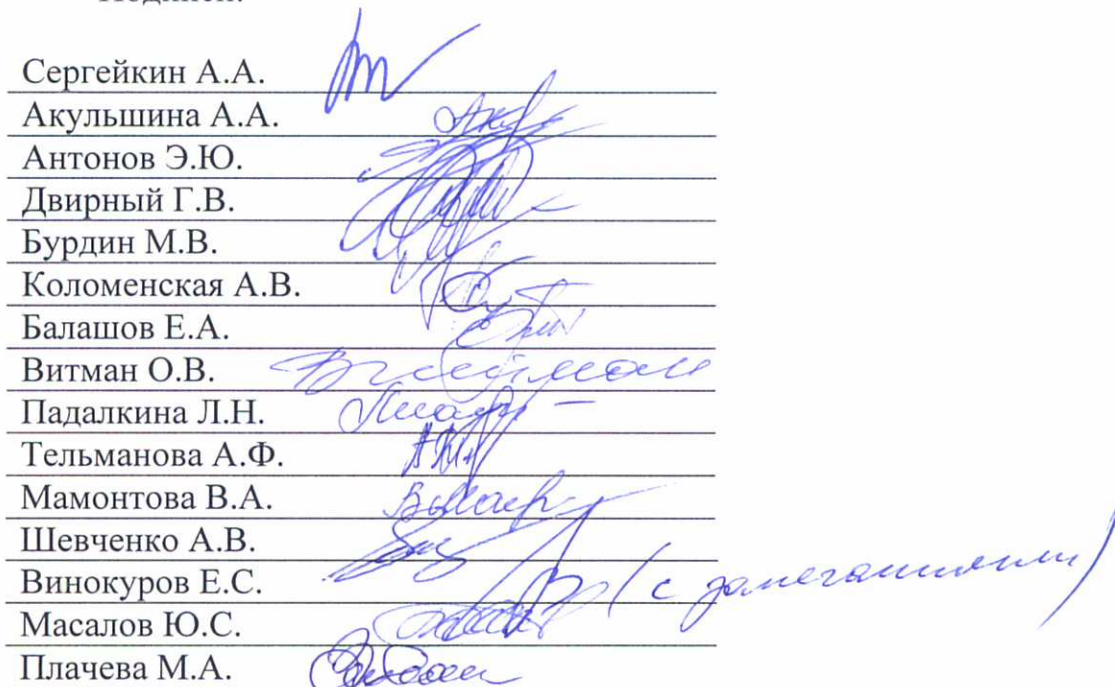 Сергейкин А.А.
Акульшина А.А.
Антонов Э.Ю.
Двирный Г.В.
Бурдин М.В.
Коломенская А.В.
Балашов Е.А.
Витман О.В.
Падалкина Л.Н.
Тельманова А.Ф.
Мамонтова В.А.
Шевченко А.В.
Винокуров Е.С. (с замечаниями)
Масалов Ю.С.
Плачева М.А.